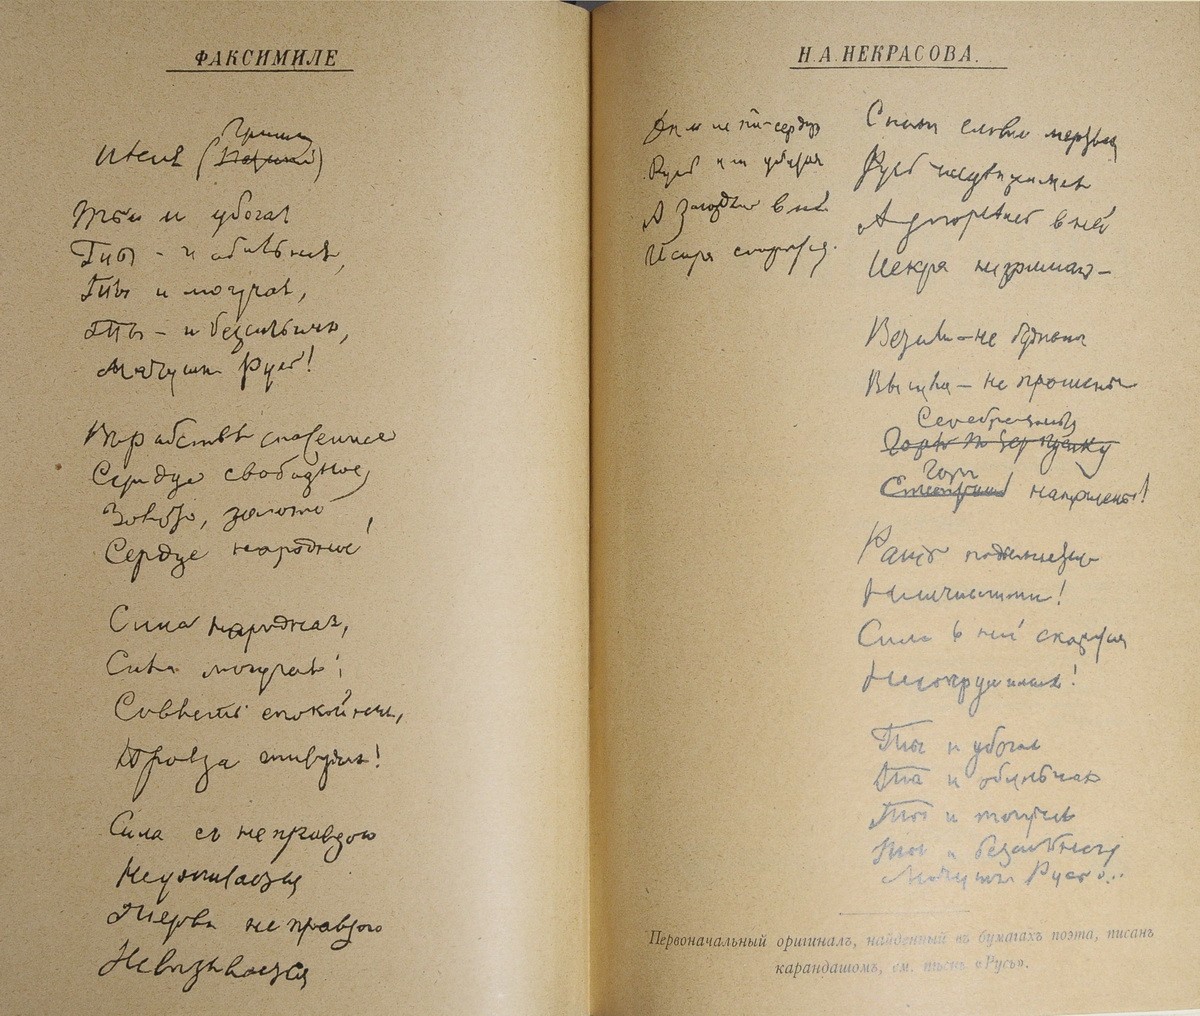 ФАКСИМИЛЕ
Пѣсня (Гриши)
Ты и убогая
Ты - и обильная,
Ты и могучая,
Ты - и безсильная,
Матушка Русь!
Въ рабствѣ спасенное
Сердце свободное,
Золото, золото
Сердце народное!
Сила народная,
Сила могучая:
Совѣсть спокойная,
Правда живучая!
Сила съ неправдою
Не уживается
Жертва неправдою
Не вызывается
Н. А. НЕКРАСОВА.
Русь
А въ ней
Искра
Словно мертвая
Русь недвижимая
А загорѣлась в ней
Искра незримая -
Встали - не бужены
Вышли - не прошены
Серебряными
Горы
наношены!
Рать подымается
Неисчислимая!
Сила в ней скажется
Несокрушимая!
Ты и убогая
Ты и обильная
Ты и могучая
Ты и безсильная
Матушка Русь!..
Первоначальный оригиналъ, найденный въ бумагахъ поэта, писанъ
карандашомъ, см. пѣснь «Русь».